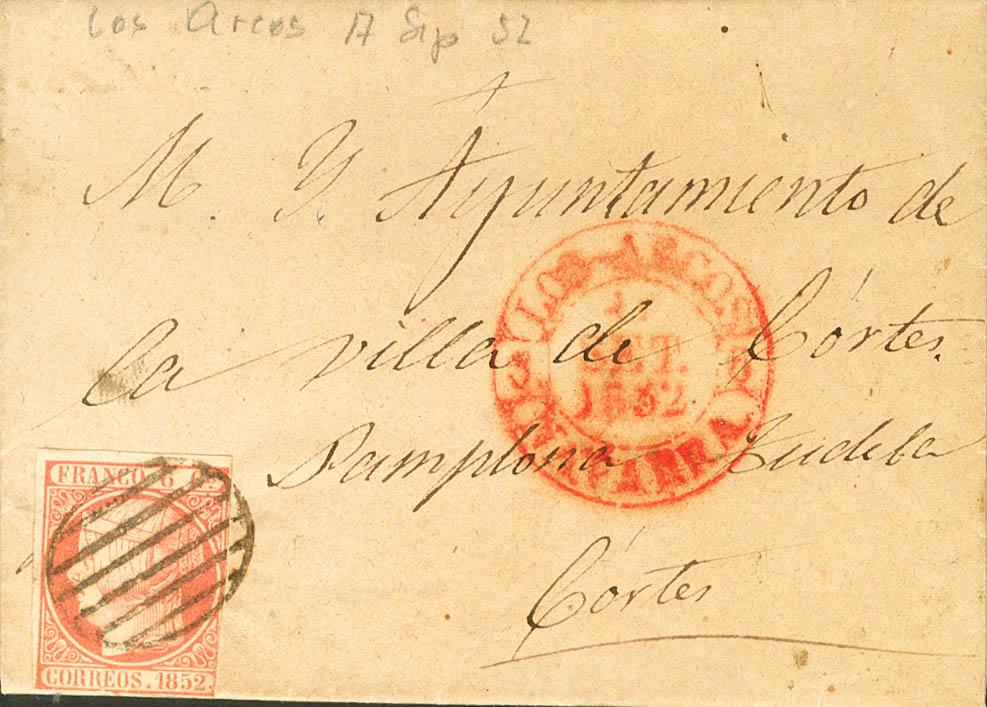 Los Arcos 17 Sep 52
M. Y. Ayuntamiento de
la villa de Córtes.
Pamplona Tudela
Córtes
LOS ARCOS
SET.
1852
NAVARRA
FRANCO 6 Cs.
CORREOS. 1852.